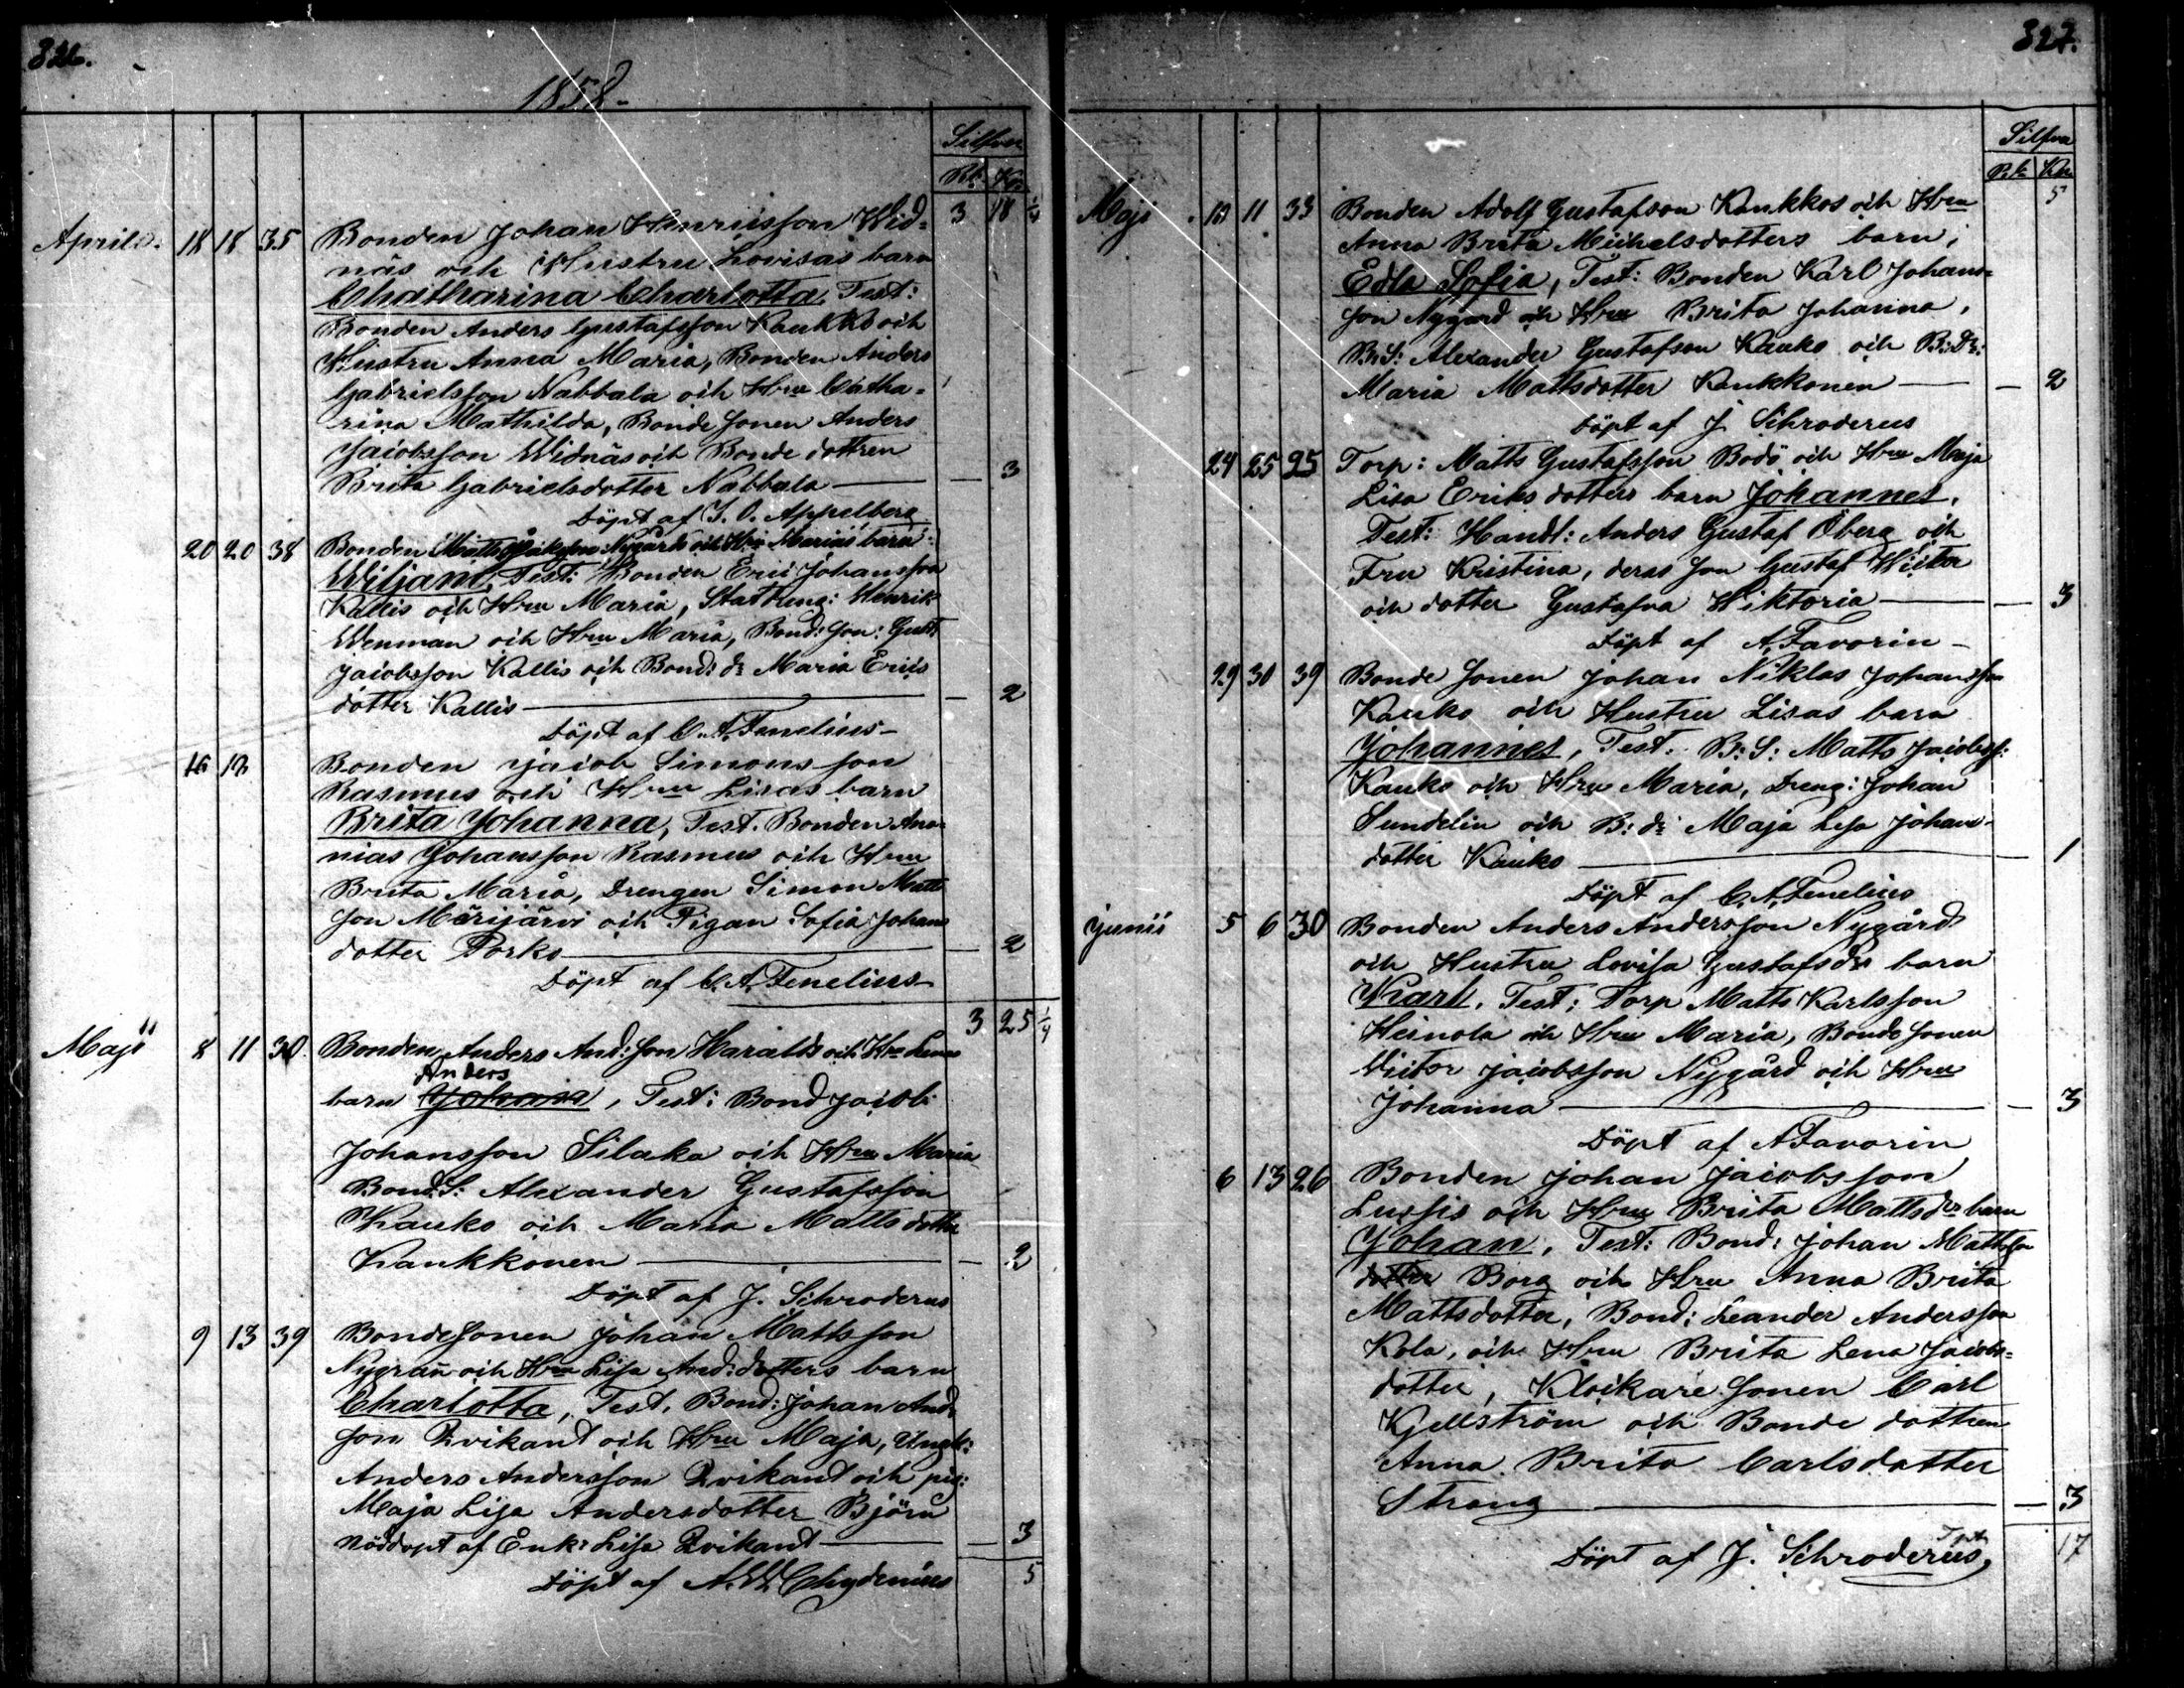 326.
1858.
Silfver
Rb. Kp.
3 18 1/4
Aprilis. 18 18 35 Bonden Johan Henricsson Wid-
näs och Hustru Lovisas barn
Chatharina Charlotta, Test:
Bonden Anders Gustafsson Kaukko och
Hustru Anna Maria, Bonden Anders
Gabrielsson Nabbala och Hru Catha-
rina Mathilda, Bonde Sonen Anders
Jacobsson Widnäs och Bonde dottren
Brita Gabrielsdotter Nabbala — 3
Döpt af J. O. Appelberg
20 20 38 Bonden Matts Nygård och Hru Marias barn:
Wiljam, Test: Bonden Eric Johansson
Kallis och Hru Maria, Henrik
Wenman och Hru Maria, Bond: Son: Gust
Jacobsson Kallis och Bond: dr Maria Erics
dotter Kallis — 2
Döpt af C. A. Fenelius
16 Bonden Jacob Simonsson
Rasmus och Hru Lisas barn
Brita Johanna, Test. Bonden Ana-
nias Johansson Rasmus och Hru
Brita Maria, Drengen Simon Matts
son Märijärvi och Pigan Sofia Johans
dotter Porko — 2
Döpt af C. A. Fenelius
3 25 1/4
Maji 8 11 30 Bonden Anders And: Son Haralds och Hru Lenas
Anders
barn Johan, Test: Bond Jacob
Johansson Silaka och Hru Maria
Bond. S: Alexander Gustafsson
Kauko och Maria Matts dotter
Kaukkonen — 2
Döpt af J. Schroderus
9 13 39 BondeSonen Johan Mattsson
Nygran och Hru Lisa And: dotters barn
Charlotta, Test. Bond: Johan And:
son Qvikant och Hru Maja, Ungk:
Anders Andersson Qvikant och pig:
Maja Lisa Andersdotter Björn
Nöddopt af Enk: Lisa Qvikant — 3
Döpt af A. W. Chydenius 5
327.
Silfver
Rb. Kp.
5
Maji 10 11 33 Bonden Adolf Gustafson Kaukkos och Hru
Anna Brita Michelsdotters barn,
Edla Sofia, Test: Bonden Karl Johans-
son Nygård och Hru Brita Johanna,
B: S: Alexander Gustafson Kauko och B: Dr:
Maria Mattsdotter Kaukkonen — 2
Döpt af J. Schroderus
24 25 25 Torp: Matts Gustafsson Bodö och Hru Maja
Lisa Eriks dotters barn Johannes.
Test: Handl: Anders Gustaf Öberg och
Fru Kristina, deras Son Gustaf Victor
och dotter Gustafva Wiktoria — 3
Döpt af A. Favorin
29 30 39 Bonde Sonen Johan Niklas Johansson
Kauko och Hustru Lisas barn
Johannes, Test. B: S: Matts Jacobss:
Kauko och Hru Maria, Dreng: Johan
Sundelin och B: dr Maja Lisa Johans-
dotter Kauko — 1
Döpt af C. A. Fenelius
Junii 5 6 30 Bonden Anders Andersson Nygård
och Hustru Lovisa Gustafsdrs barn
Karl, Test: Torp Matts Karlsson
Heinola och Hru Maria, Bonde Sonen
Victor Jacobsson Nygård och Hru
Johanna — 3
Döpt af A. Favorin
6 13 26 Bonden Johan Jacobsson
Lussis och Hru Brita Mattsdrs barn
Johan, Test: Bond: Johan Mattsson
dotter Borg och Hru Anna Brita
Mattsdotter, Bond: Leander Andersson
Kola, och Hru Brita Lena Jacobs-
dotter, Klockare Sonen Carl
Kjellström och Bonde dottren
Anna Brita Carlsdotter
Strang — 3
Döpt af J. Schroderus, Tpt 17